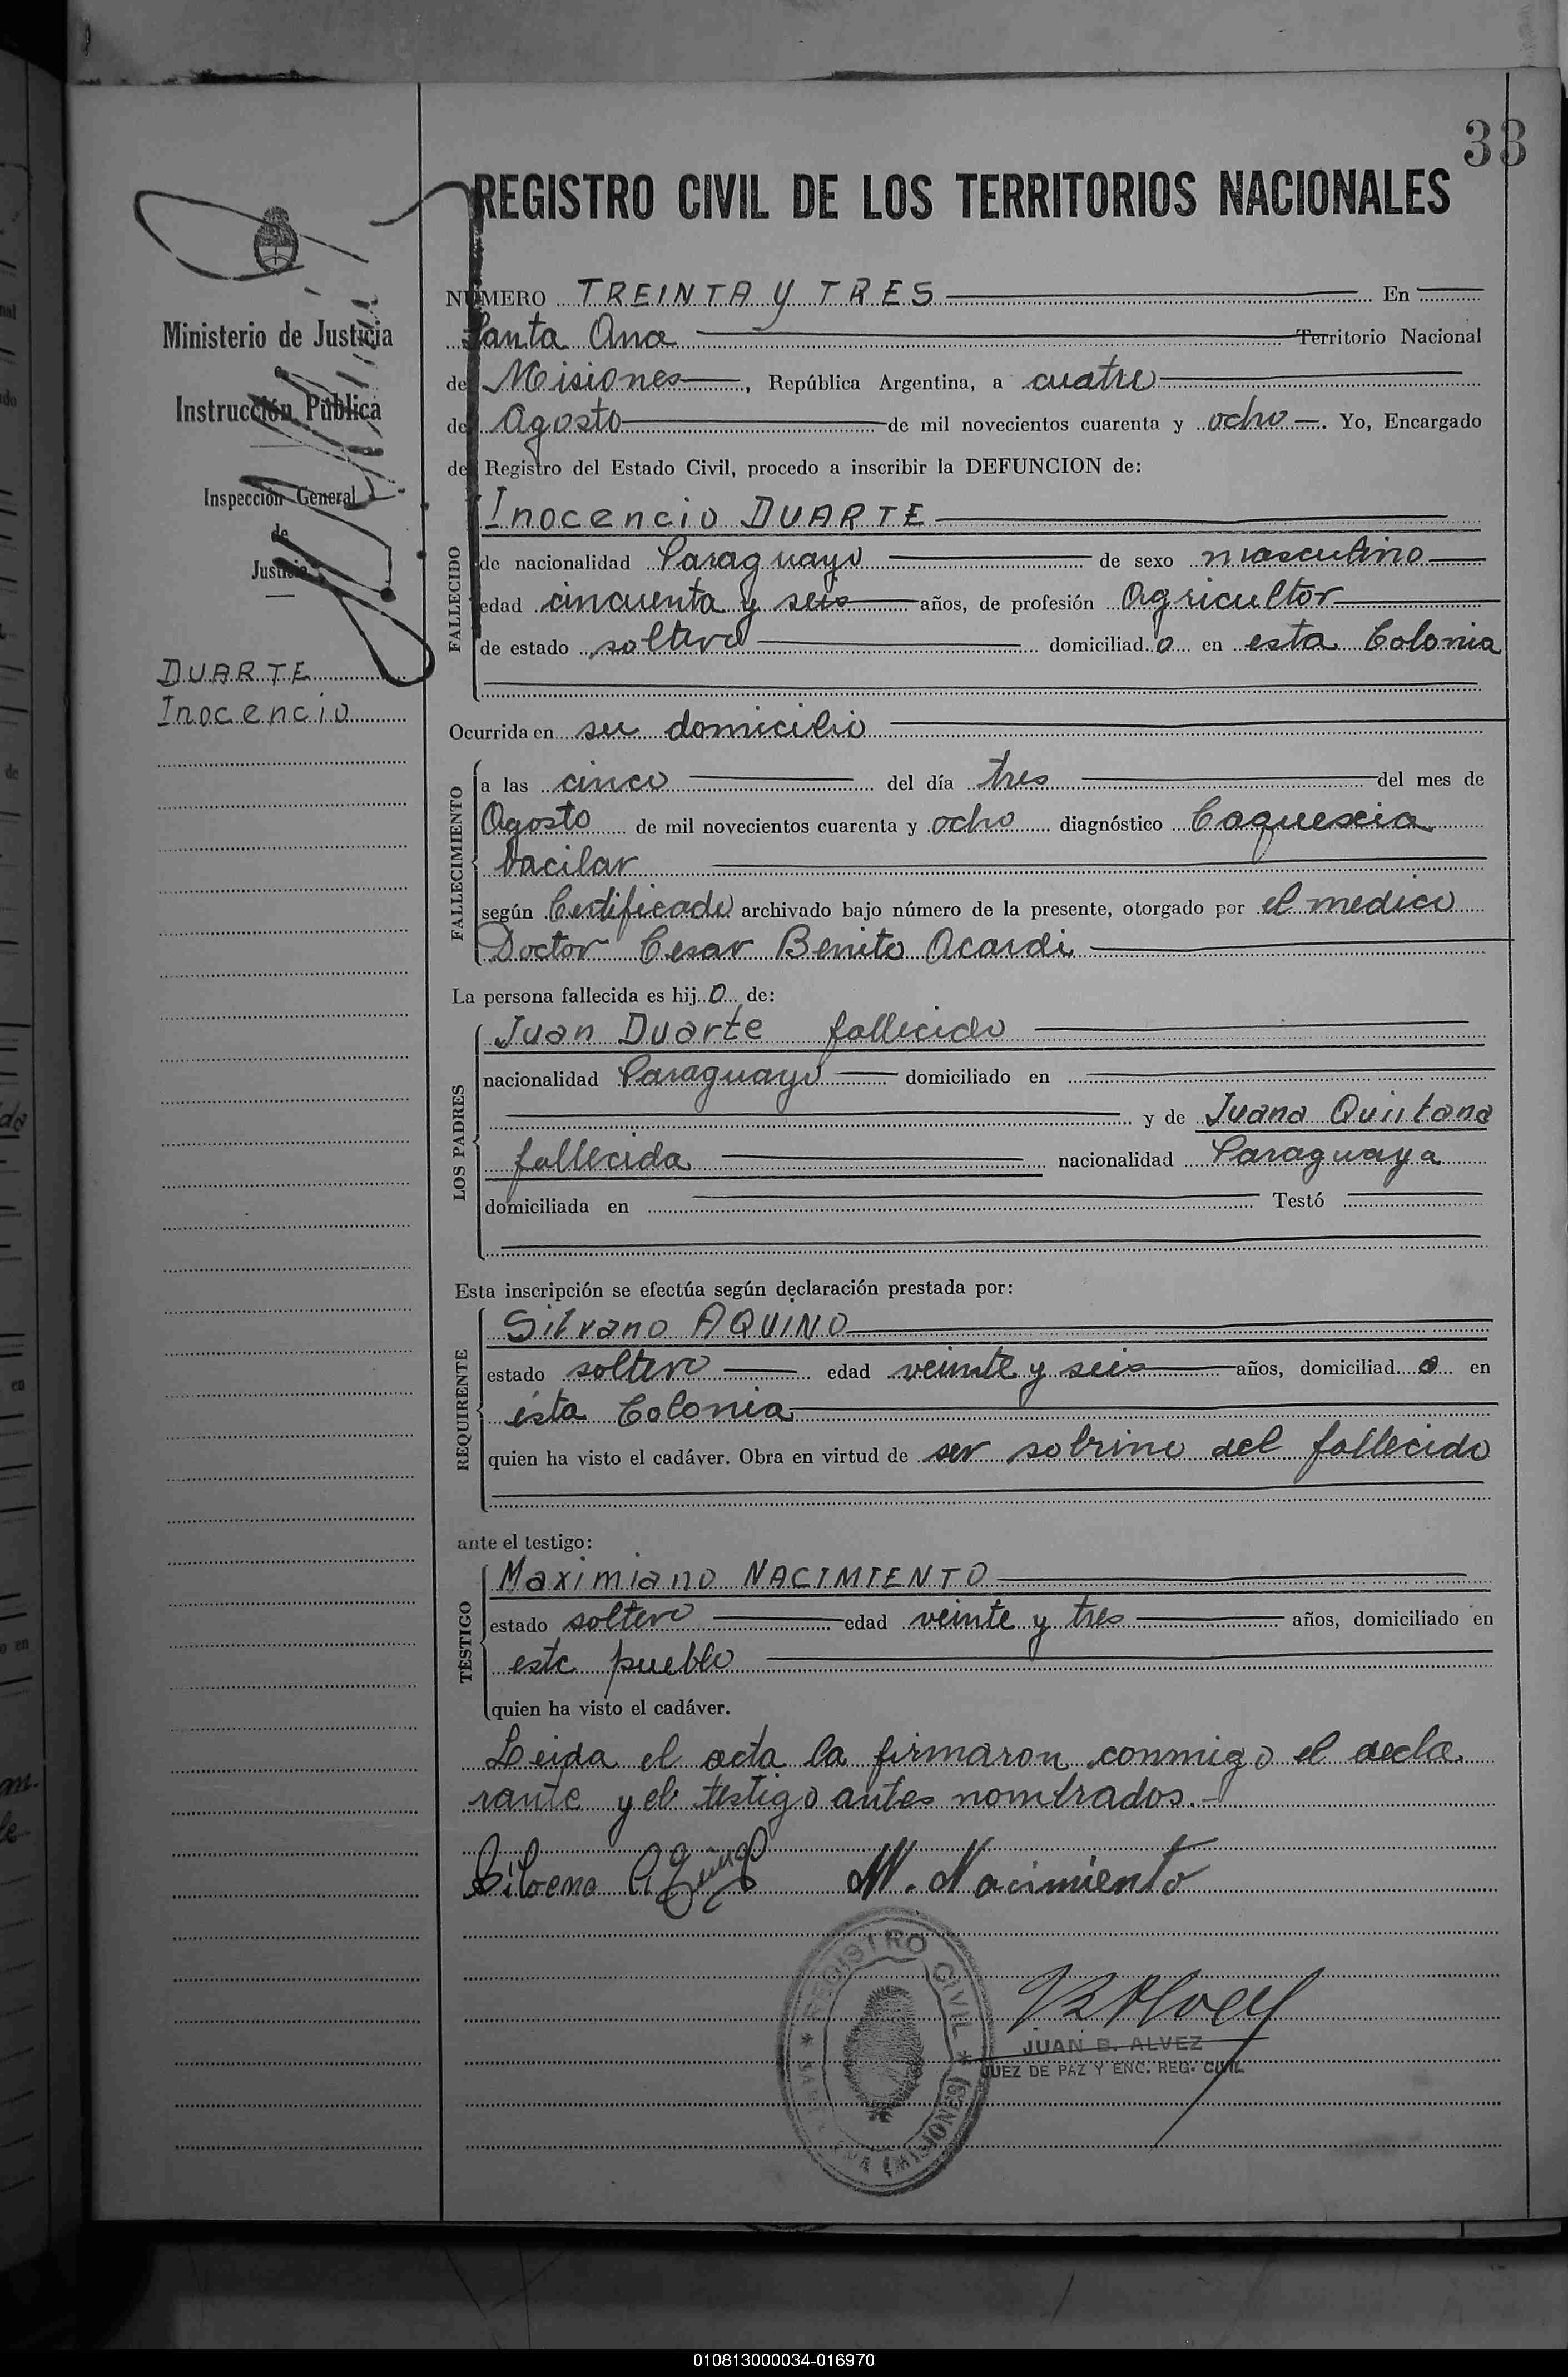 33
REGISTRO CIVIL DE LOS TERRITORIOS NACIONALES
Ministerio de Justicia
Instrucción Pública
Inspección General
de
Justicia
DUARTE
Inocencio
NÚMERO TREINTA Y TRES En
Santa Ana Territorio Nacional
de Misiones, República Argentina, a cuatro
de Agosto de mil novecientos cuarenta y ocho. Yo, Encargado
del Registro del Estado Civil, procedo a inscribir la DEFUNCION de:
FALLECIDO
Inocencio DUARTE
de nacionalidad Paraguayo de sexo masculino
edad cincuenta y seis años, de profesión Agricultor
de estado soltero domiciliado en esta Colonia
Ocurrida en su domicilio
FALLECIMIENTO
a las cinco del día tres del mes de
Agosto de mil novecientos cuarenta y ocho diagnóstico Caquexia
bacilar
según Certificado archivado bajo número de la presente, otorgado por el medico
Doctor Cesar Benito Acardi
La persona fallecida es hijo de:
LOS PADRES
Juan Duarte fallecido
nacionalidad Paraguayo domiciliado en
y de Juana Quintana
fallecida nacionalidad Paraguaya
domiciliada en Testó
Esta inscripción se efectúa según declaración prestada por:
REQUIRENTE
Silvano AQUINO
estado soltero edad veinte y seis años, domiciliado en
ésta Colonia
quien ha visto el cadáver. Obra en virtud de ser sobrino del fallecido
ante el testigo:
TESTIGO
Maximiano NACIMIENTO
estado soltero edad veinte y tres años, domiciliado en
este pueblo
quien ha visto el cadáver.
Leida el acta la firmaron conmigo el decla
rante y el testigo antes nombrados.-
Silvano Aquino M. Nacimiento
REGISTRO CIVIL
SANTA ANA (MISIONES)
JUAN B. ALVEZ
JUEZ DE PAZ Y ENC. REG. CIVIL
010813000034-016970